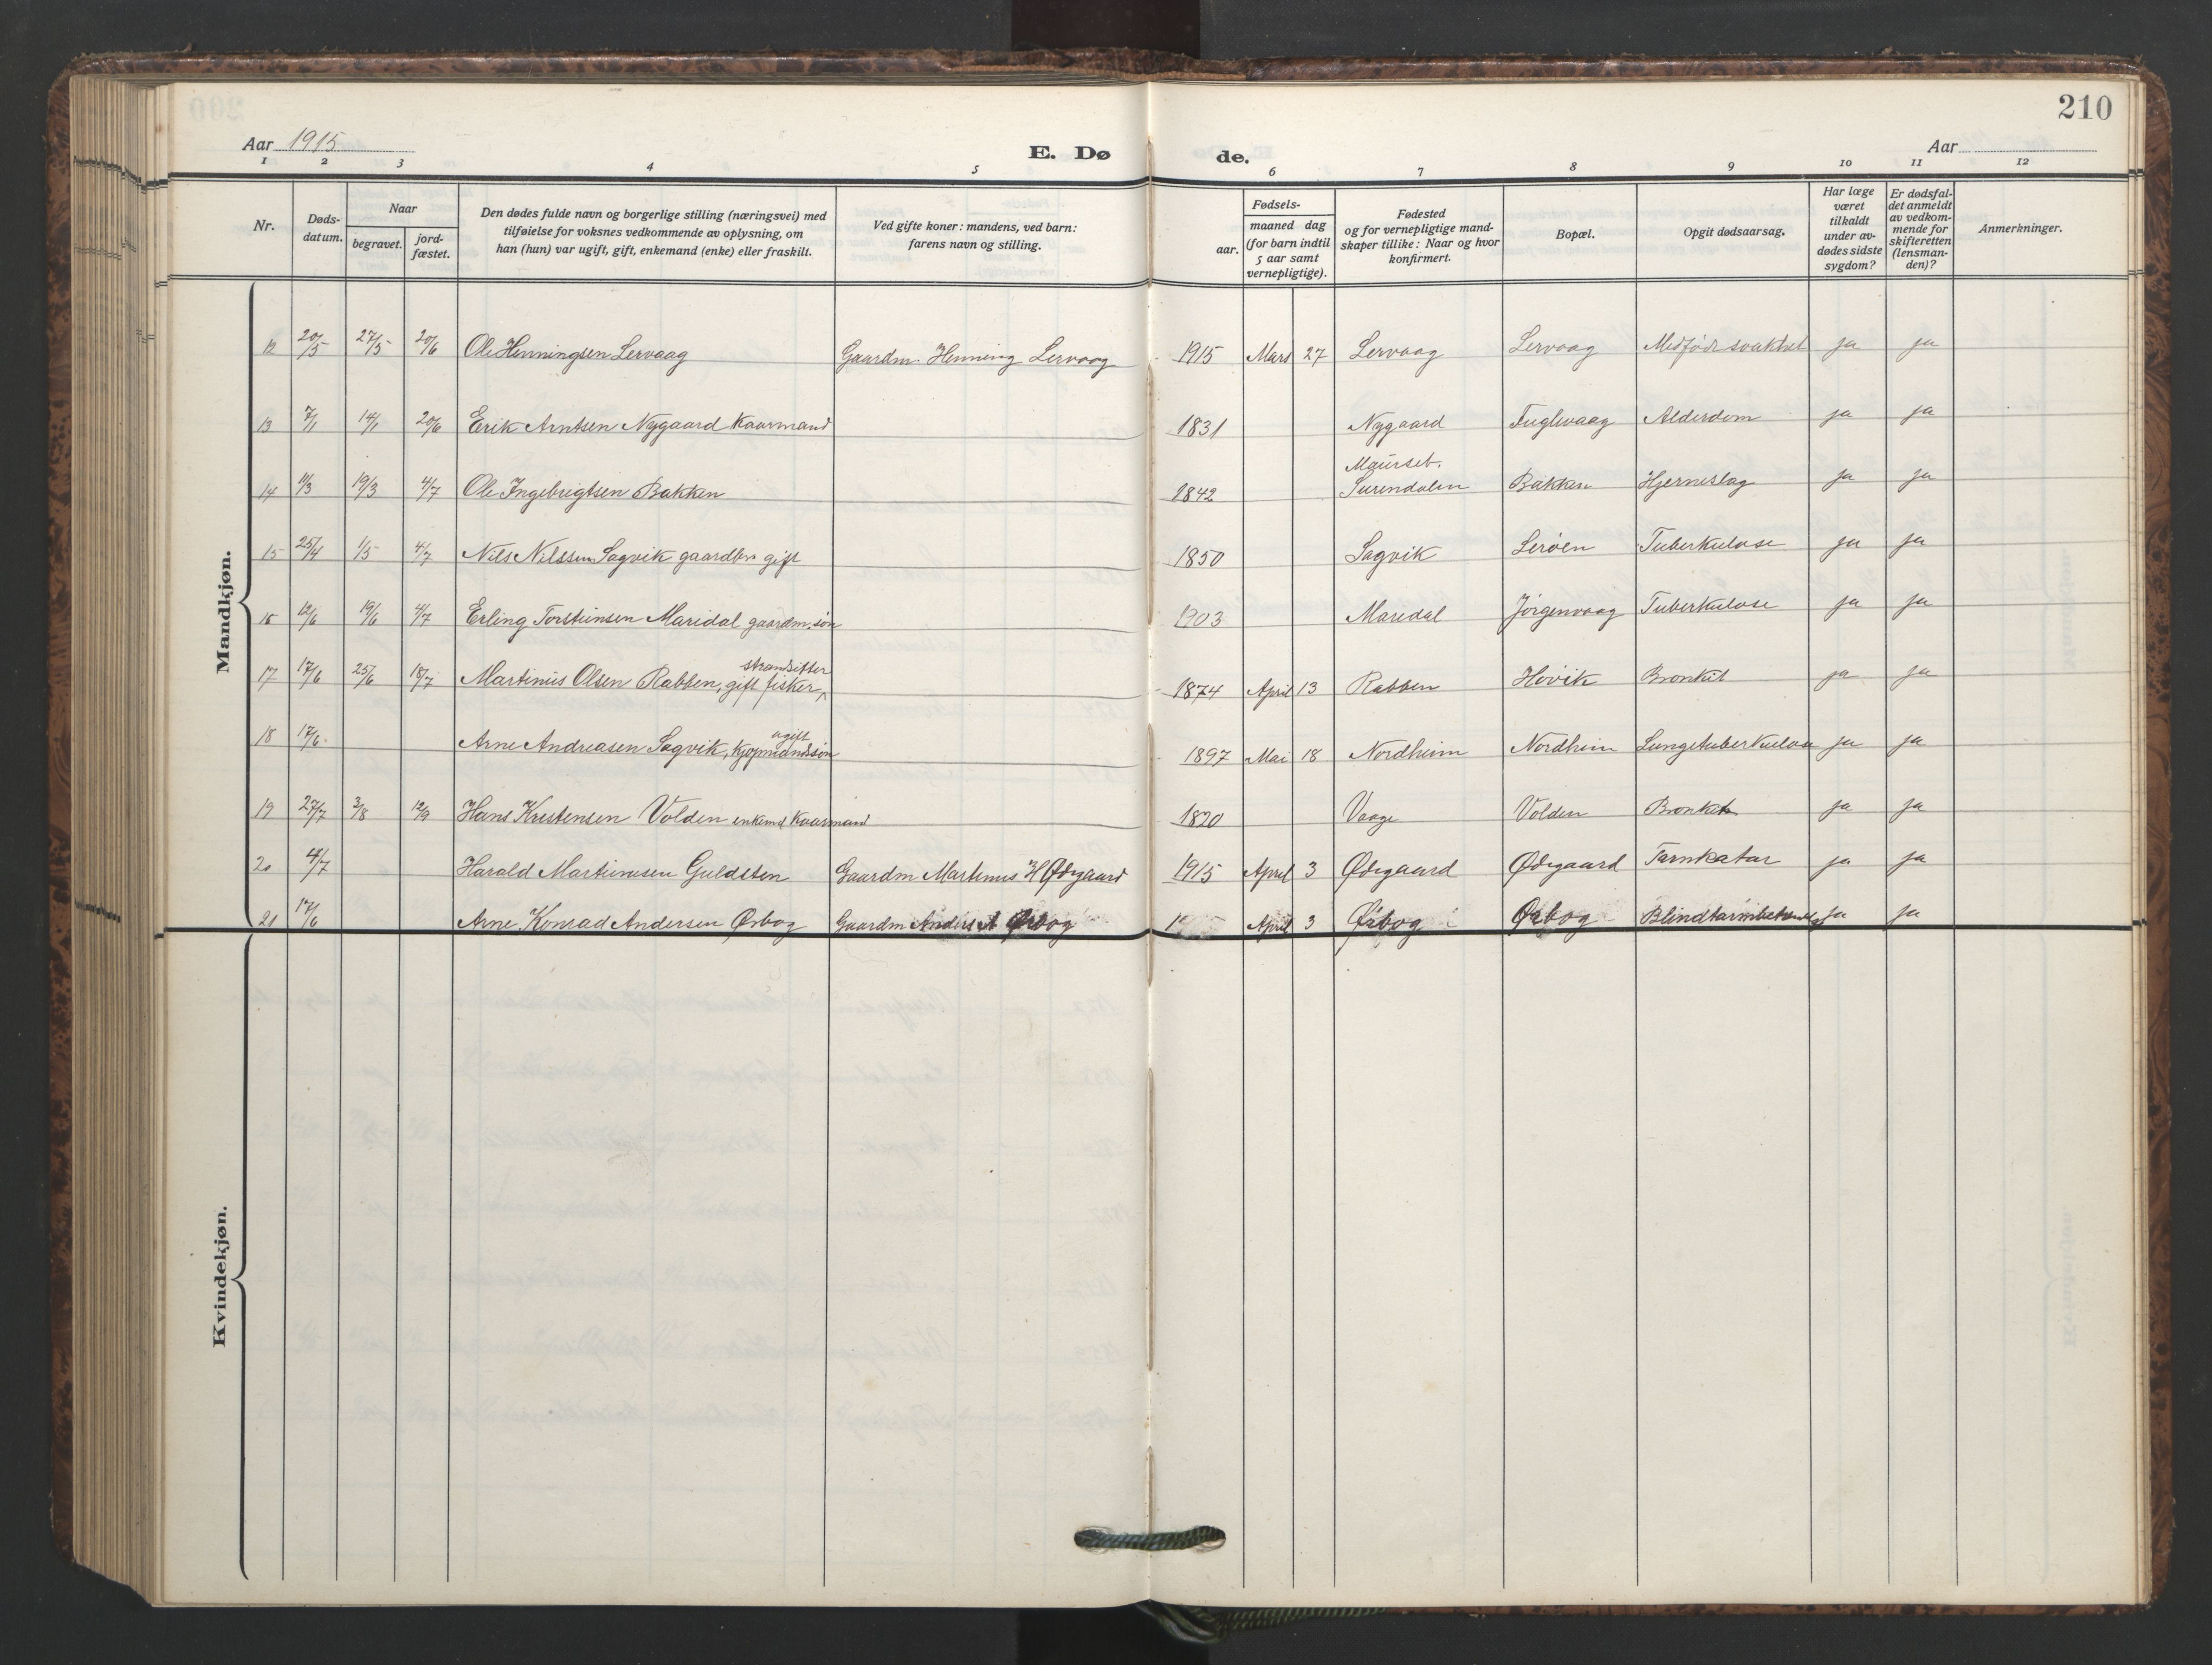 210
Aar 1915
E. Dø de.
Aar
1 2 3 4 5 6 7 8 9 10 11 12
Nr.
Døds-
datum.
Naar
begravet.
jord-
fæstet.
Den dødes fulde navn og borgerlige stilling (næringsvei) med
tilføielse for voksnes vedkommende av oplysning, om
han (hun) var ugift, gift, enkemand (enke) eller fraskilt.
Ved gifte koner: mandens, ved barn:
farens navn og stilling.
Fødsels-
aar.
maaned dag
(for barn indtil
5 aar samt
vernepligtige).
Fødested
og for vernepligtige mand-
skaper tillike: Naar og hvor
konfirmert.
Bopæl.
Opgit dødsaarsag.
Har læge
været
tilkaldt
under av-
dødes sidste
sygdom?
Er dødsfal-
det anmeldt
av vedkom-
mende for
skifteretten
(lensman-
den)?
Anmerkninger.
Mandkjøn.
12 20/5 27/5 20/6 Ole Henningsen Lervaag Gaardm. Henning Lervaag 1915 Mars 27 Lervaag Lervaag Medfødt svakhet ja ja
13 7/1 14/1 20/6 Erik Arntsen Nygaard Kaarmand 1831 Nygaard Fuglevaag Alderdom ja ja
14 11/3 19/3 4/7 Ole Ingebrigtsen Bakken 1842 Maurset. Surendalen Bakken Hjerneslag ja ja
15 25/4 1/5 4/7 Nils Nilssen Sagvik gaardbr. gift 1850 Sagvik Lerøen Tuberkulose ja ja
16 12/6 19/6 4/7 Erling Torsteinsen Maridal gaardm. søn 1903 Maredal Jørgenvaag Tuberkulose ja ja
17 17/6 25/6 18/7 Martinus Olsen Rabben, gift fisker, strandsitter 1874 April 13 Rabben Høvik Bronkit ja ja
18 17/6. Arne Andreasen Sagvik, ugift Kjøpmandssøn 1897 Mai 18 Nordheim Nordheim Lungetuberkulose ja ja
19 27/7 3/8 12/9 Hans Kristensen Volden enkemd Kaarmand 1820 Vaage Volden Bronkit ja ja
20 4/7 Harald Martinusen Guldsten Gaardm Martinus H Ødegaard 1915 April 3 Ødegaard Ødegaard Tarmkatar ja ja
21 17/6 Arne Konrad Andersen Ørbog Gaardm Anders A Ørbog April 3 Ørbog Ørbog ja ja
Kvindekjøn.